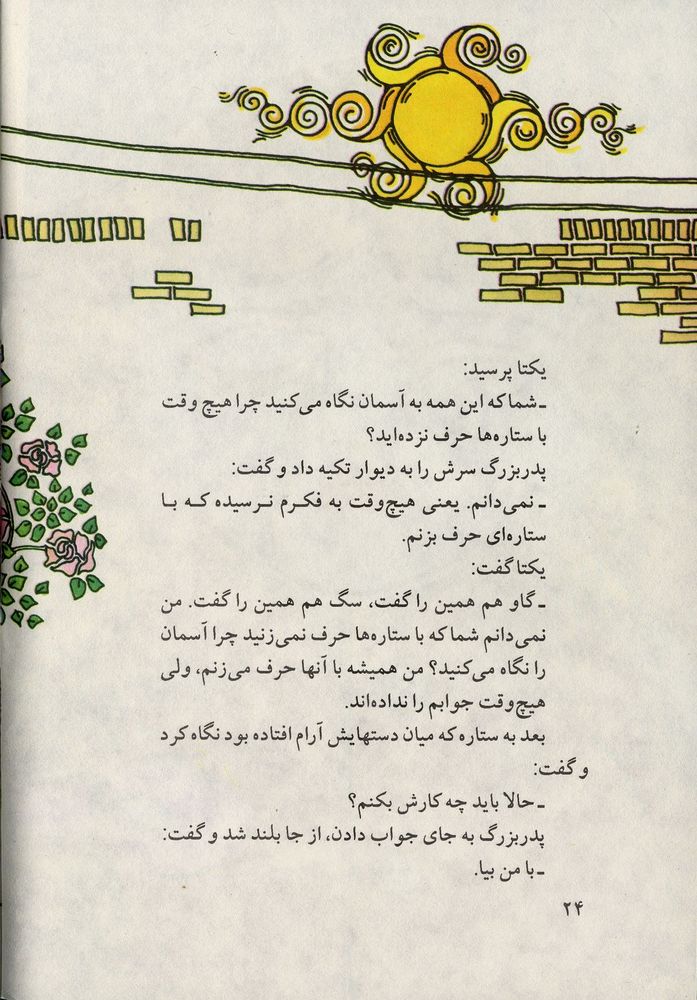 یکتا پرسید:
ـ شما که این همه به آسمان نگاه می‌کنید چرا هیچ وقت
با ستاره‌ها حرف نزده‌اید؟
پدربزرگ سرش را به دیوار تکیه داد و گفت:
ـ نمی‌دانم. یعنی هیچ‌وقت به فکرم نرسیده که با
ستاره‌ای حرف بزنم.
یکتا گفت:
ـ گاو هم همین را گفت، سگ هم همین را گفت. من
نمی‌دانم شما که با ستاره‌ها حرف نمی‌زنید چرا آسمان
را نگاه می‌کنید؟ من همیشه با آنها حرف می‌زنم، ولی
هیچ‌وقت جوابم را نداده‌اند.
بعد به ستاره که میان دستهایش آرام افتاده بود نگاه کرد
و گفت:
ـ حالا باید چه کارش بکنم؟
پدربزرگ به جای جواب دادن، از جا بلند شد و گفت:
ـ با من بیا.
۲۴